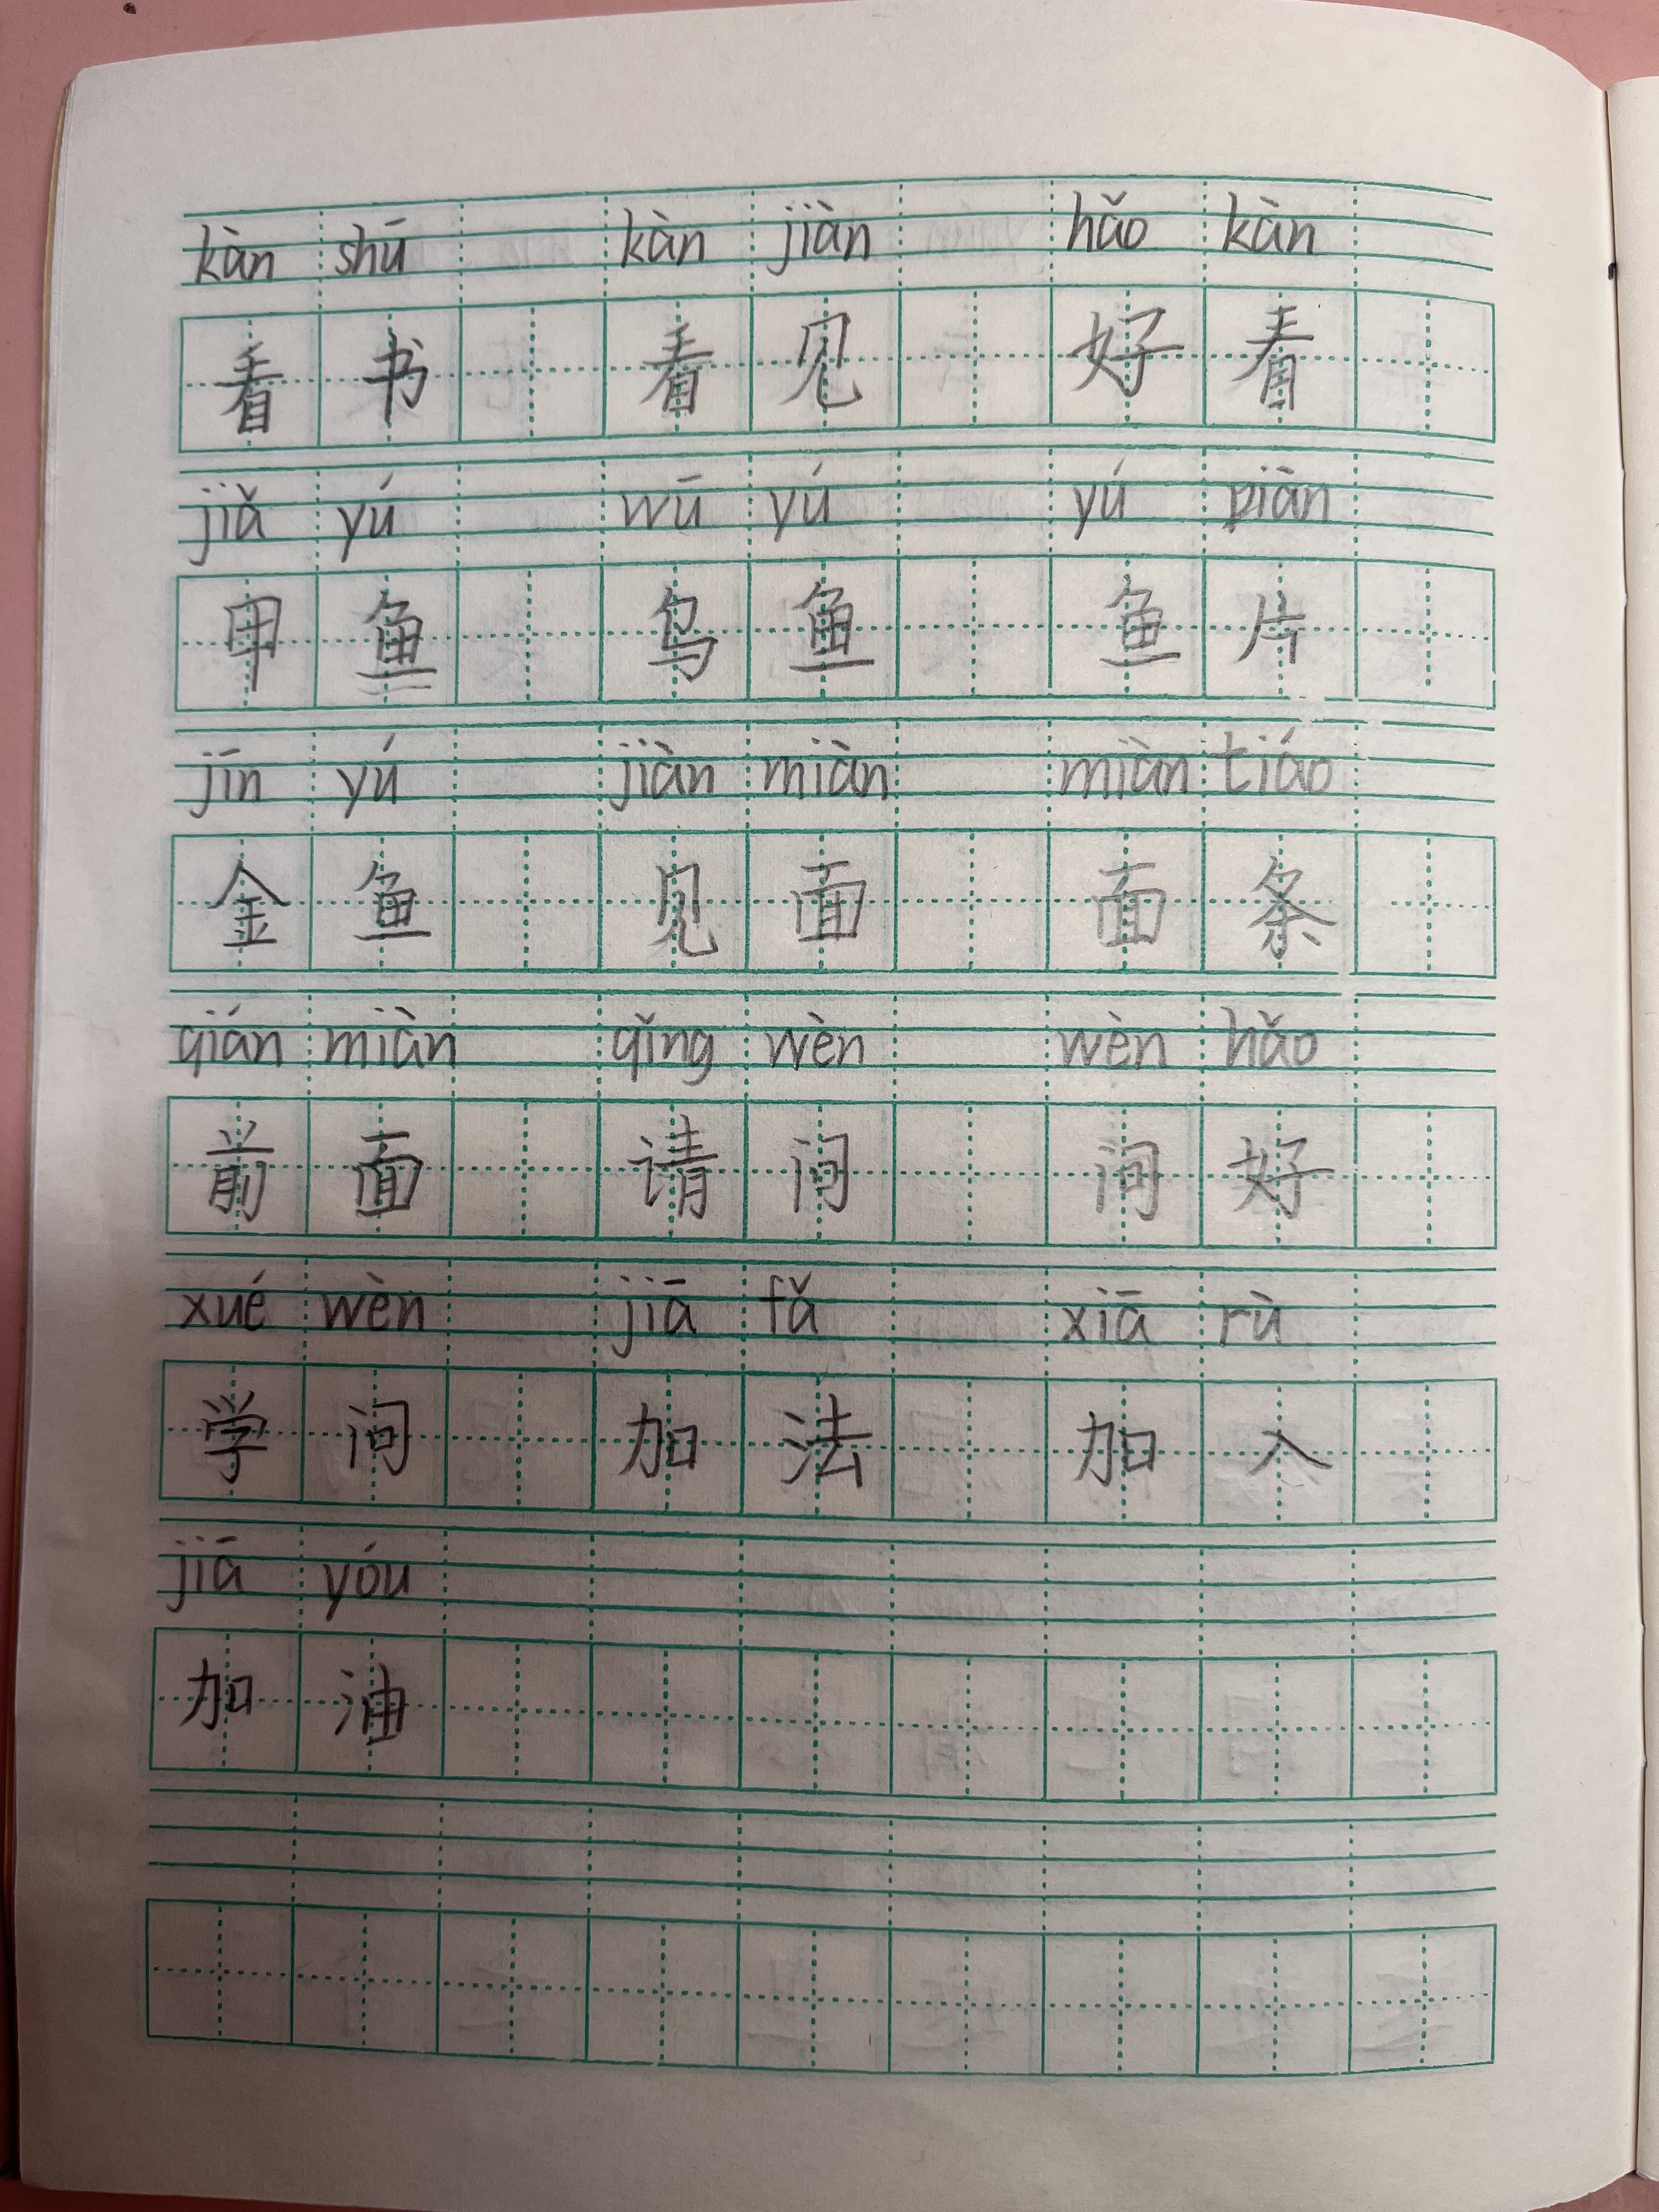 kàn shū kàn jiàn hǎo kàn
看书 看见 好看
jiǎ yú wū yú yú piàn
甲鱼 乌鱼 鱼片
jīn yú jiàn miàn miàn tiáo
金鱼 见面 面条
qián miàn qǐng wèn wèn hǎo
前面 请问 问好
xué wèn jiā fǎ xiā rù
学问 加法 加入
jiā yóu
加油